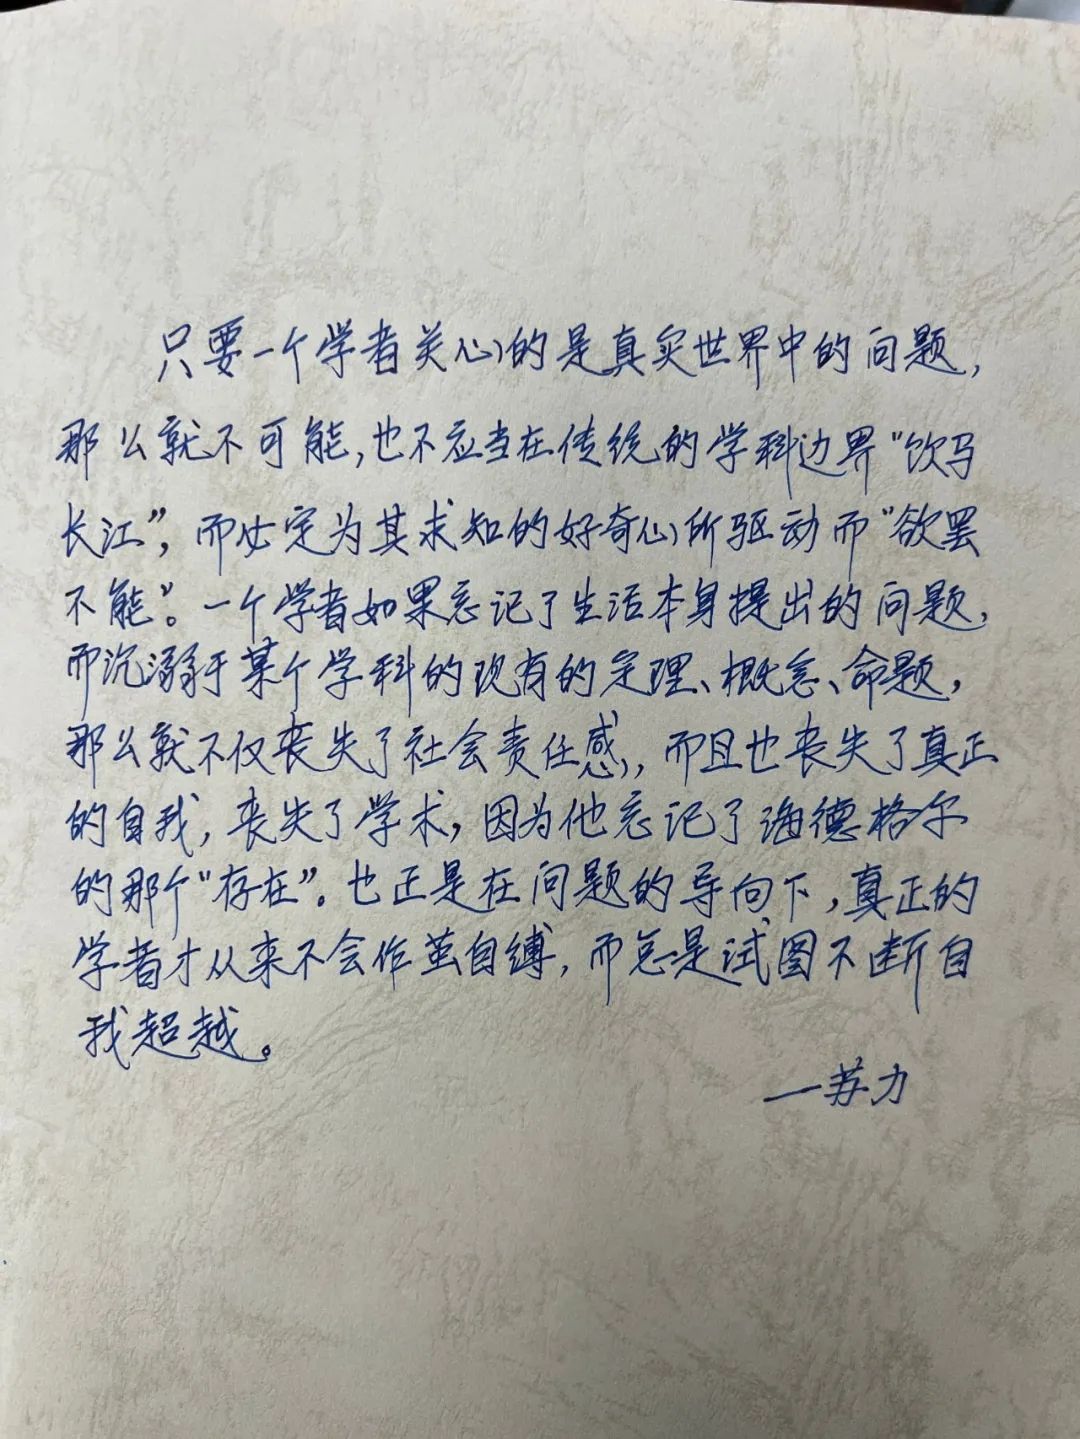 只要一个学者关心的是真实世界中的问题，
那么就不可能，也不应当在传统的学科边界“饮马
长江”，而必定为其求知的好奇心所驱动而“欲罢
不能”。一个学者如果忘记了生活本身提出的问题，
而沉溺于某个学科的现有的定理、概念、命题，
那么就不仅丧失了社会责任感，而且也丧失了真正
的自我，丧失了学术，因为他忘记了海德格尔
的那个“存在”。也正是在问题的导向下，真正的
学者才从来不会作茧自缚，而总是试图不断自
我超越。
—苏力